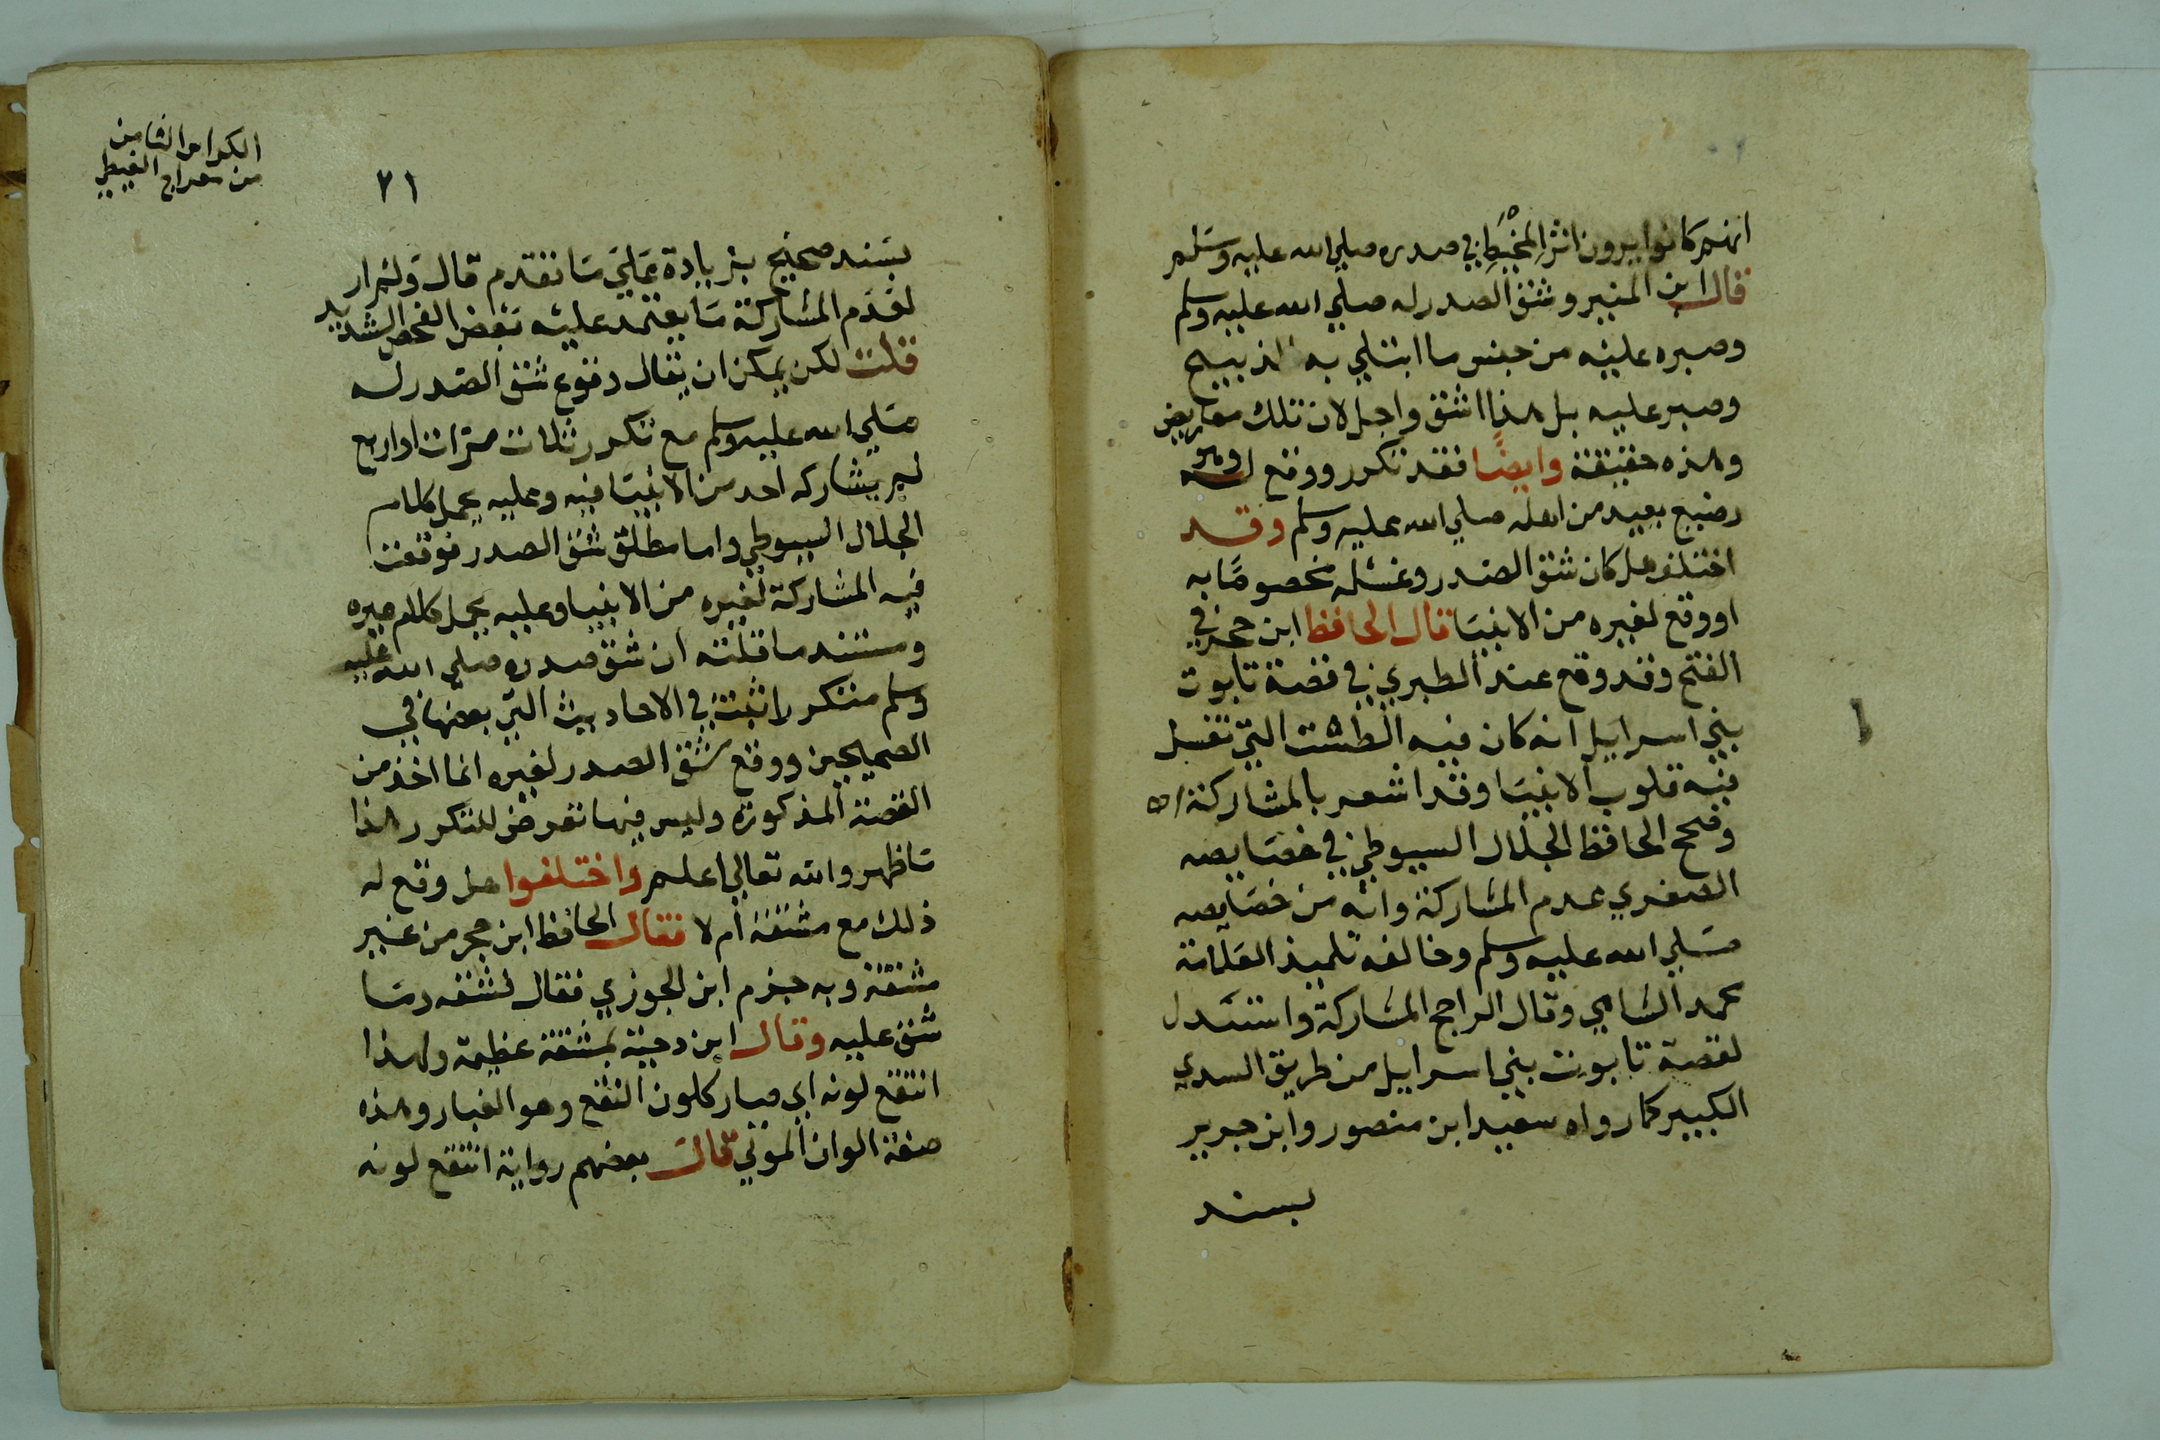 انهم كانوا يرون اثر المخيط في صدره صلي الله عليه وسلم
قال ابن المنير وشق الصدر له صلي الله عليه وسلم
وصبره عليه من جنس ما ابتلي به الذبيح
وصبر عليه بل هذا اشق واجل لان تلك معاريض
وهذه حقيقة وايضًا فقد تكرر ووقع له وهو
رضيع بعيد من اهله صلي الله عليه وسلم وقد
اختلف هل كان شق الصدر وغسله مخصوصًا به
او وقع لغيره من الانبيا قال الحافظ ابن حجر في
الفتح وقد وقع عند الطبري في قصة تابوت
بني اسراييل انه كان فيه الطشت التي تغسل
فيه قلوب الانبيا وقد اشعر بالمشاركة اه
وصحح الحافظ الجلال السيوطي في خصايصه
الصغري عدم المشاركة وانه من خصايصه
صلي الله عليه وسلم وخالفه تلميذ العلامة
محمد الشامي وقال الراجح المشاركة واستدل
لقصة تابوت بني اسراييل من طريق السدي
الكبير كما رواه سعيد ابن منصور وابن جرير
بسند
الكراس الثامن
من معراج الغيطي
٢١
بسند صحيح بزيادة علي ما تقدم قال ولم ار
لعدم المشاركة ما يعتمد عليه بعض الفحص الشديد
قلت لكن يمكن ان يقال وقوع شق الصدر له
صلي الله عليه وسلم مع تكرر ثلاث مرات او اربع
لم يشاركه احد من الانبيا فيه وعليه يحمل كلام
الجلال السيوطي واما مطلق شق الصدر فوقعت
فيه المشاركة لغيره من الانبيا وعليه يحمل كلام غيره
ومستند ما قلته ان شق صدره صلي الله عليه
وسلم متكررا ثبت في الاحاديث التي بعضها في
الصحيحين ووقع شق الصدر لغيره انما اخذ من
القصة المذكورة وليس فيها تعرض للتكرر هذا
ما ظهر والله تعالي اعلم واختلفوا هل وقع له
ذلك مع مشقة ام لا فقال الحافظ ابن حجر من غير
مشقة وبه جزم ابن الجوزي فقال فشقه وما
شق عليه وقال ابن دحية بمشقة عظيمة ولهذا
انتقع لونه اي صار كلون النقع وهو الغبار وهذه
صفة الوان الموتي قال بعضهم رواية انتقع لونه